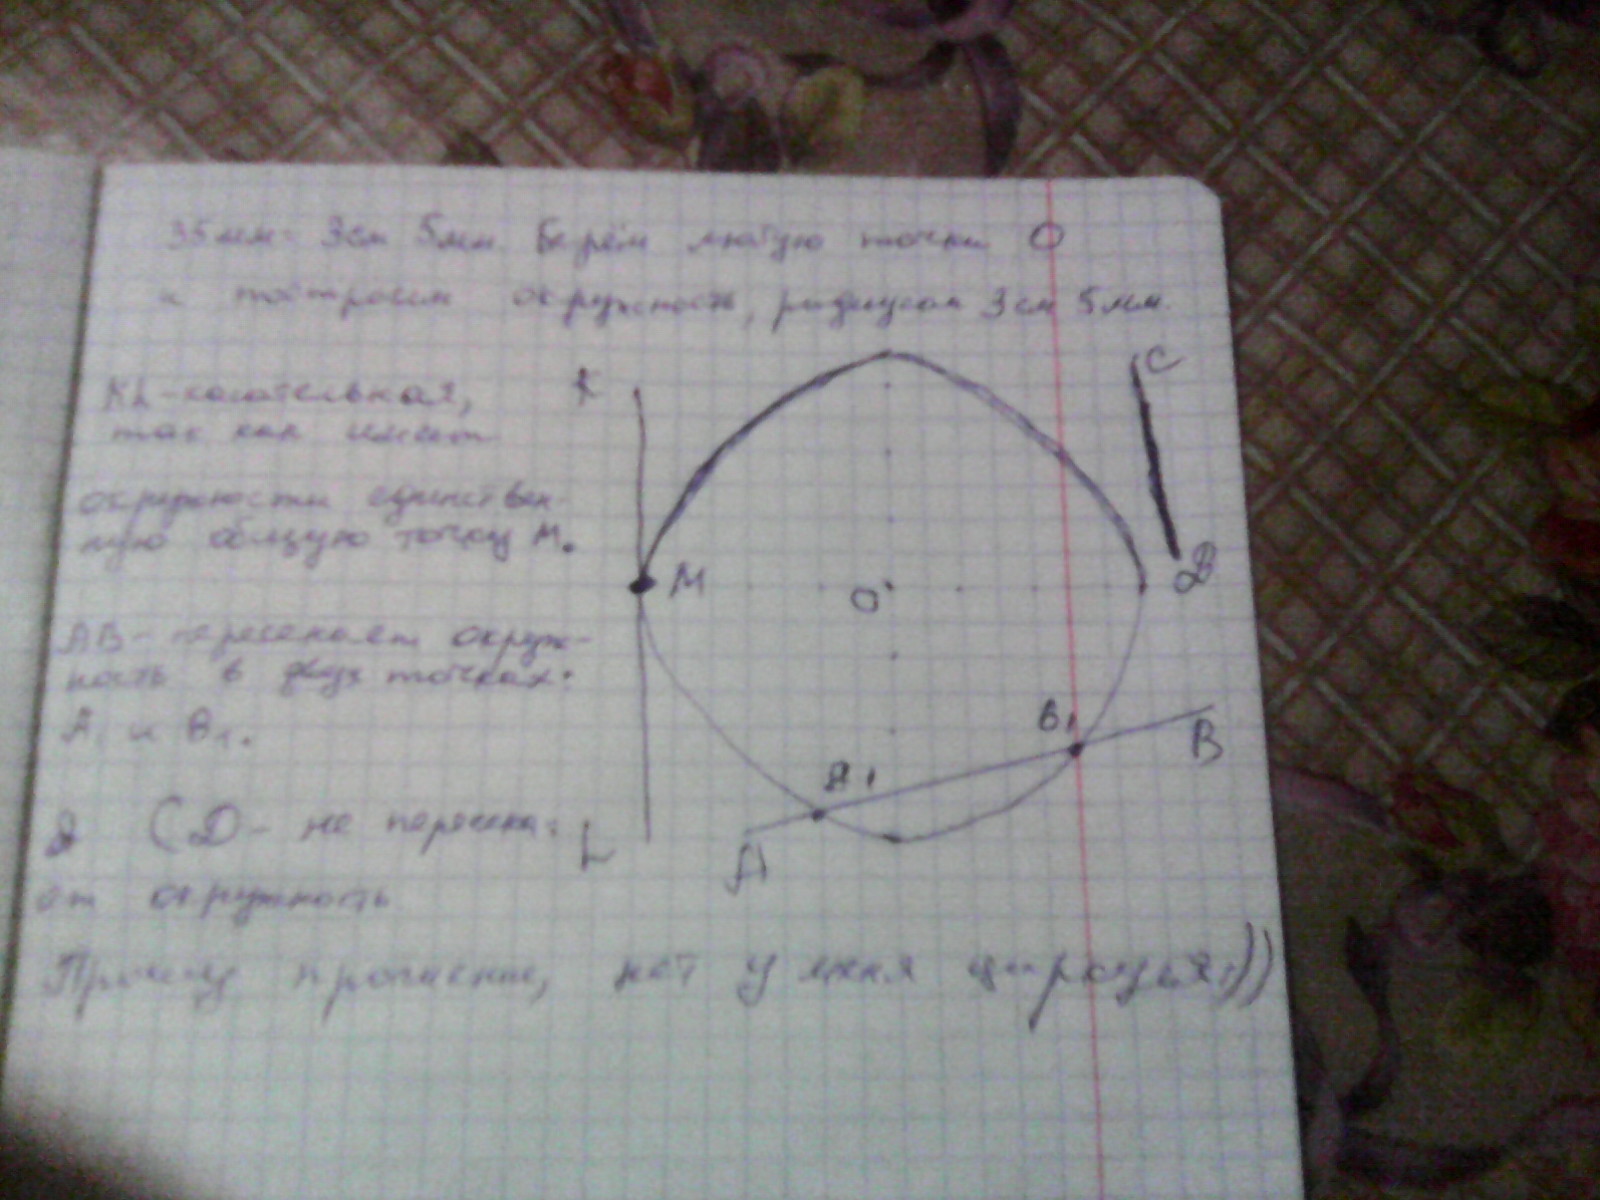 35мм = 3см 5мм Берём любую точку О
и построим окружность, радиусом 3см 5мм.
KL - касательная,
так как имеет
окружности единствен-
ную общую точку М.
АВ - пересекает окруж-
ность в двух точках:
А₁ и В₁.
СD - не пересека-
ет окружность
Прошу прощение, нет у меня циркуля,))
K
C
M
O
D
B₁
B
A₁
L
A